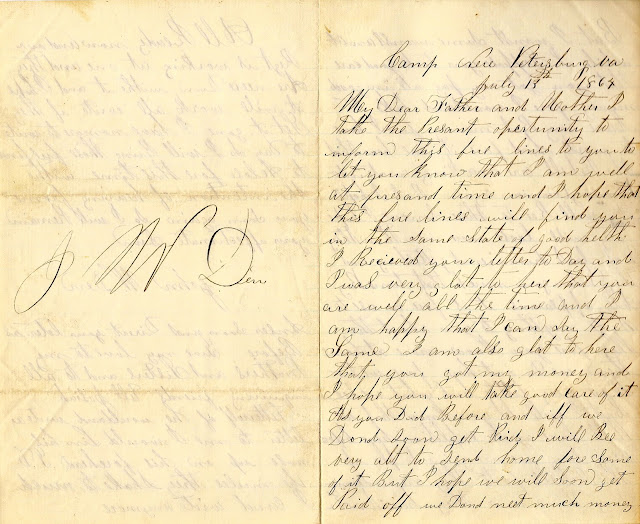 J W Den
Camp Nere Petersburg va
July 1th 1864
My Dear Father and Mother I
take the Presant opertunity to
inform this fue lines to you to
let you know that I am well
at presand time and I hope that
this fue lines will find you
in the same State of good helth
I Recieved your letter to Day and
I was very glat to here that you
are well all the time and I
am happy that I can say the
Same I am also glat to here
that you got my money and
I hope you will take good Care of it
As you Did Before and iff we
Dond Soon get Paid I will Bee
very apt to Send home fore Some
of it But I hope we will Soon get
Paid off we Dond neet much money